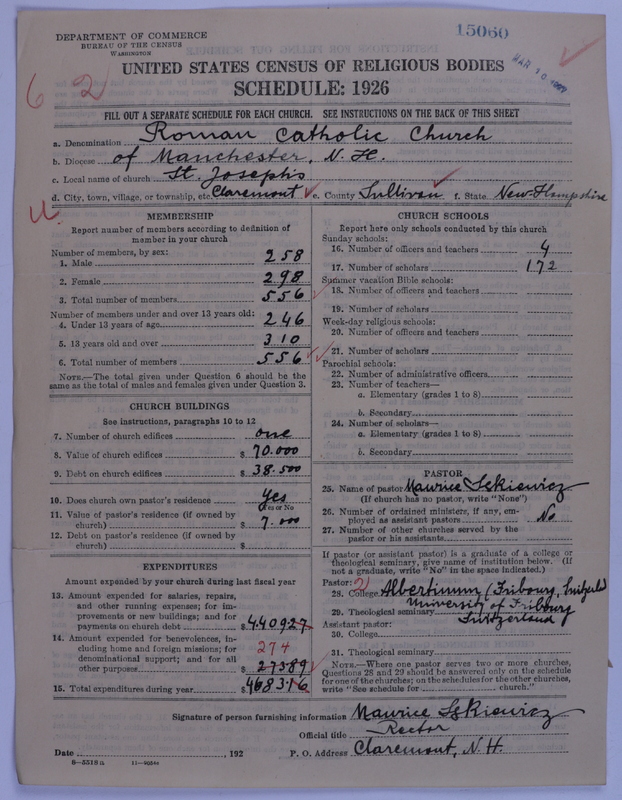 DEPARTMENT OF COMMERCE
BUREAU OF THE CENSUS
WASHINGTON
15060
MAR 10
6 2
UNITED STATES CENSUS OF RELIGIOUS BODIES
SCHEDULE: 1926
FILL OUT A SEPARATE SCHEDULE FOR EACH CHURCH. SEE INSTRUCTIONS ON THE BACK OF THIS SHEET
a. Denomination Roman Catholic Church
b. Diocese of Manchester, N. H.
c. Local name of church St. Joseph's
d. City, town, village, or township, etc. Claremont e. County Sullivan f. State New-Hampshire
MEMBERSHIP
Report number of members according to definition of
member in your church
Number of members, by sex:
1. Male 258
2. Female 298
3. Total number of members 556
Number of members under and over 13 years old:
4. Under 13 years of age 246
5. 13 years old and over 310
6. Total number of members 556
NOTE.—The total given under Question 6 should be the
same as the total of males and females given under Question 3.
CHURCH BUILDINGS
See instructions, paragraphs 10 to 12
7. Number of church edifices one
8. Value of church edifices $ 70.000
9. Debt on church edifices $ 38.500
10. Does church own pastor's residence Yes
Yes or No
11. Value of pastor's residence (if owned by
church) $ 7.000
12. Debt on pastor's residence (if owned by
church) $
EXPENDITURES
Amount expended by your church during last fiscal year
13. Amount expended for salaries, repairs,
and other running expenses; for im-
provements or new buildings; and for
payments on church debt $ 440927
14. Amount expended for benevolences, in-
cluding home and foreign missions; for
denominational support; and for all
other purposes 274
$ 27389
15. Total expenditures during year $ 468316
CHURCH SCHOOLS
Report here only schools conducted by this church
Sunday schools:
16. Number of officers and teachers 4
17. Number of scholars 172
Summer vacation Bible schools:
18. Number of officers and teachers
19. Number of scholars
Week-day religious schools:
20. Number of officers and teachers
21. Number of scholars
Parochial schools:
22. Number of administrative officers
23. Number of teachers—
a. Elementary (grades 1 to 8)
b. Secondary
24. Number of scholars—
a. Elementary (grades 1 to 8)
b. Secondary
PASTOR
25. Name of pastor Maurice
(If church has no pastor, write "None")
26. Number of ordained ministers, if any, em-
ployed as assistant pastors No
27. Number of other churches served by the
pastor or his assistants
If pastor (or assistant pastor) is a graduate of a college or
theological seminary, give name of institution below. (If
not a graduate, write "No" in the space indicated.)
Pastor: 2
28. College Albertinum (Fribourg, Switzerland
29. Theological seminary University of Fribourg
Assistant pastor: Switzerland
30. College
31. Theological seminary
NOTE.—Where one pastor serves two or more churches,
Questions 28 and 29 should be answered only on the schedule
for one of the churches; on the schedules for the other churches,
write "See schedule for church."
Signature of person furnishing information Maurice
Official title Rector
Date , 192 P. O. Address Claremont, N. H.
8—5518 a 11—9054a